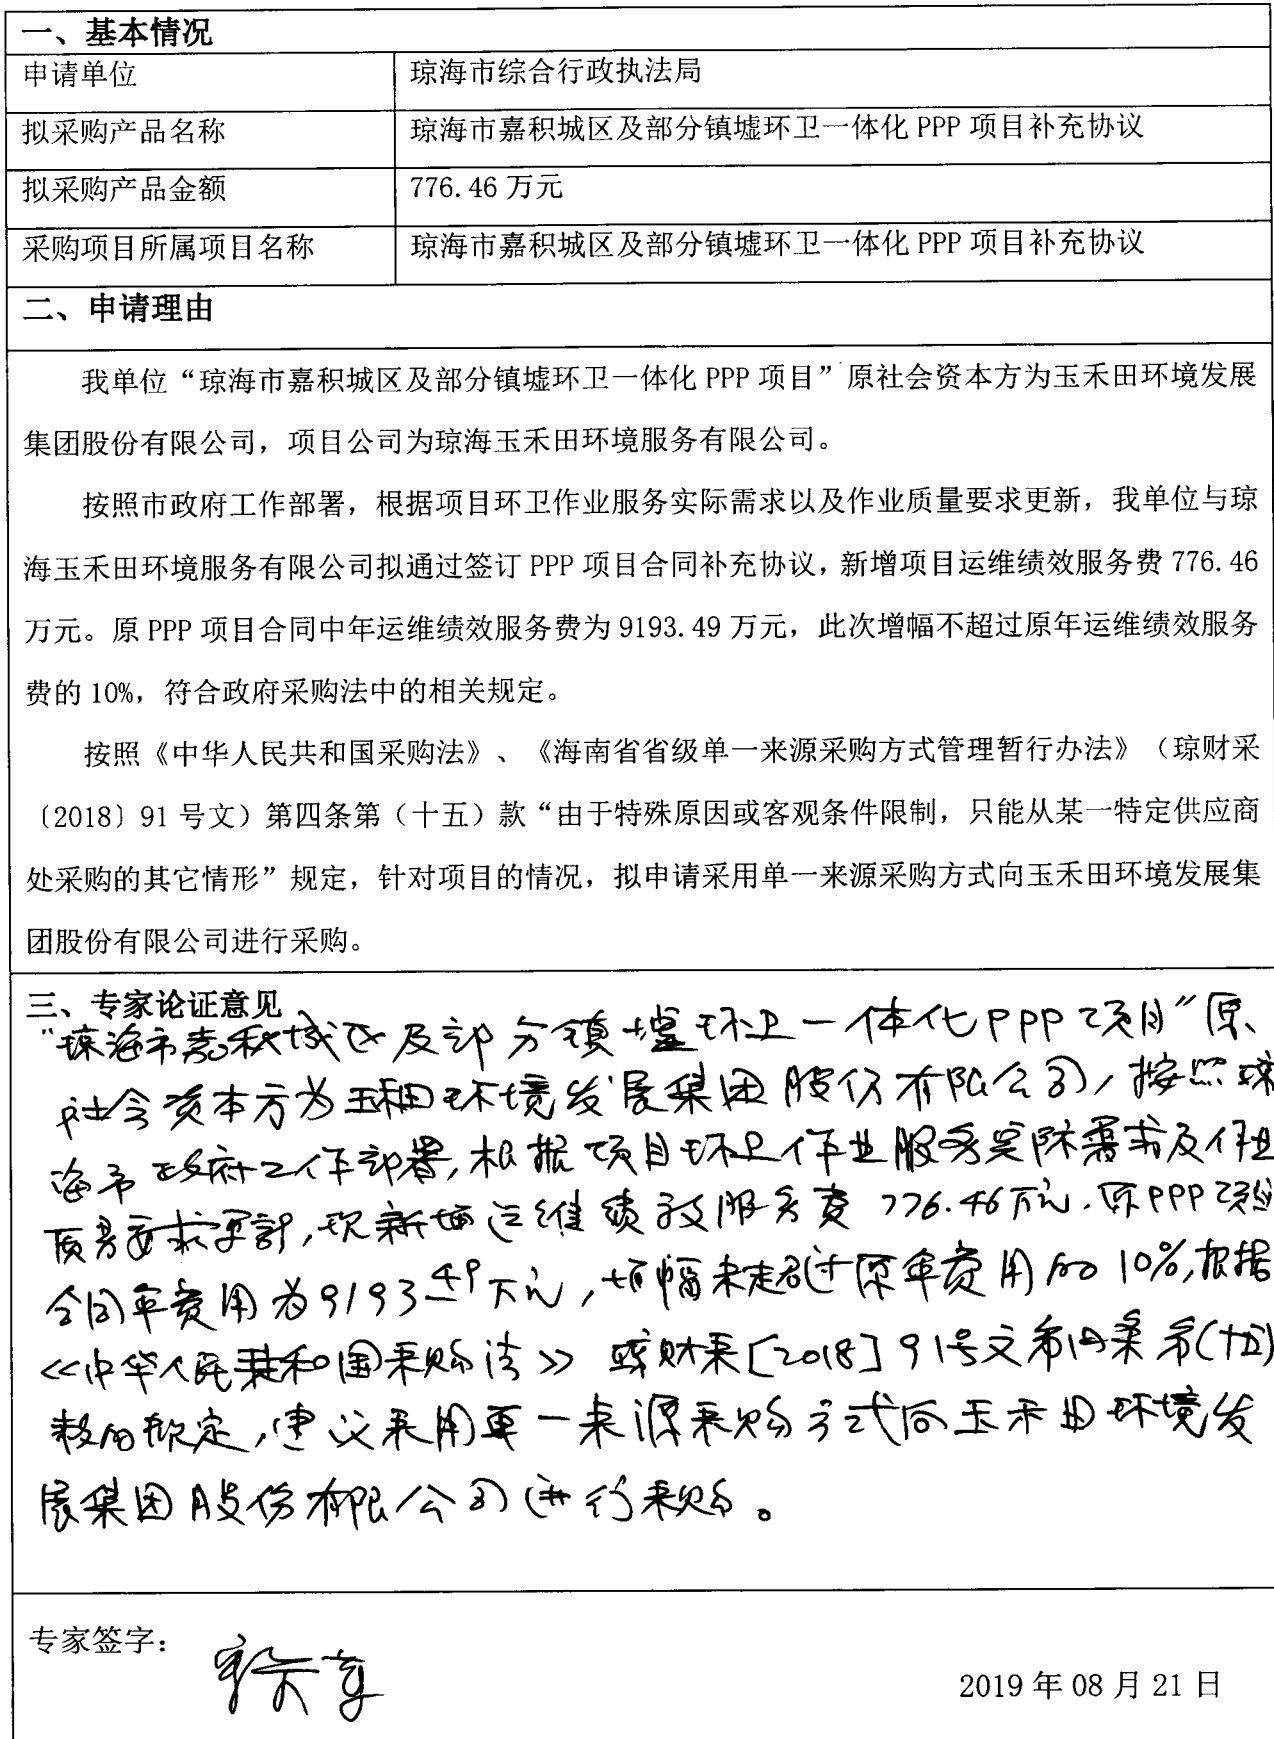 一、基本情况
申请单位 琼海市综合行政执法局
拟采购产品名称 琼海市嘉积城区及部分镇墟环卫一体化 PPP 项目补充协议
拟采购产品金额 776.46 万元
采购项目所属项目名称 琼海市嘉积城区及部分镇墟环卫一体化 PPP 项目补充协议
二、申请理由
我单位“琼海市嘉积城区及部分镇墟环卫一体化 PPP 项目”原社会资本方为玉禾田环境发展
集团股份有限公司，项目公司为琼海玉禾田环境服务有限公司。
按照市政府工作部署，根据项目环卫作业服务实际需求以及作业质量要求更新，我单位与琼
海玉禾田环境服务有限公司拟通过签订 PPP 项目合同补充协议，新增项目运维绩效服务费 776.46
万元。原 PPP 项目合同中年运维绩效服务费为 9193.49 万元，此次增幅不超过原年运维绩效服务
费的 10%，符合政府采购法中的相关规定。
按照《中华人民共和国采购法》、《海南省省级单一来源采购方式管理暂行办法》（琼财采
〔2018〕91 号文）第四条第（十五）款“由于特殊原因或客观条件限制，只能从某一特定供应商
处采购的其它情形”规定，针对项目的情况，拟申请采用单一来源采购方式向玉禾田环境发展集
团股份有限公司进行采购。
三、专家论证意见
“琼海市嘉积城区及部分镇墟环卫一体化PPP项目”原
社会资本方为玉禾田环境发展集团股份有限公司，按照琼
海市政府工作部署，根据项目环卫作业服务实际需求及作业
质量要求更新，现新增运维绩效服务费 776.46万元．原PPP项目
合同年费用为9193.49万元，增幅未超过原年费用的10%，根据
《中华人民共和国采购法》琼财采[2018]91号文第四条第(十五)
款的规定，建议采用单一来源采购方式向玉禾田环境发
展集团股份有限公司进行采购。
专家签字：
2019 年 08 月 21 日